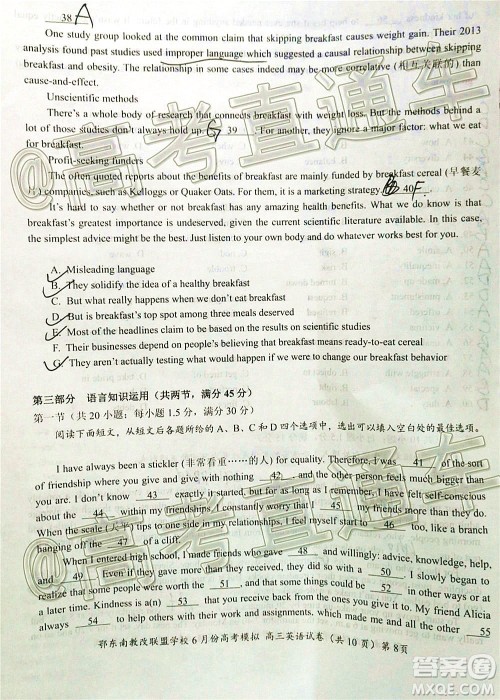 38 A
One study group looked at the common claim that skipping breakfast causes weight gain. Their 2013
analysis found past studies used improper language which suggested a causal relationship between skipping
breakfast and obesity. The relationship in some cases indeed may be more correlative (相互关联的) than
cause-and-effect.
Unscientific methods
There's a whole body of research that connects breakfast with weight loss. But the methods behind a
lot of those studies don't always hold up. G 39 For another, they ignore a major factor: what we eat
for breakfast.
Profit-seeking funders
The often quoted reports about the benefits of breakfast are mainly funded by breakfast cereal (早餐麦
片) companies, such as Kelloggs or Quaker Oats. For them, it is a marketing strategy. 40 F
It's hard to say whether or not breakfast has any amazing health benefits. What we can say is that
breakfast's greatest importance is unproven, given the current scientific literature available. In this case,
the simplest advice might be the best. Just listen to your own body and do whatever works best for you.
A. Misleading language
B. They solidify the idea of a healthy breakfast
C. But what really happens when we don't eat breakfast
D. But is breakfast's top spot among three meals deserved
E. Most of the headlines claim to be based on the results on scientific studies
F. Their businesses depend on people's believing that breakfast means ready-to-eat cereal
G. They aren't actually testing what would happen if we were to change our breakfast behavior
第三部分 语言知识运用（共两节，满分 45 分）
第一节（共 20 小题；每小题 1.5 分，满分 30 分）
阅读下面短文，从短文后各题所给的 A、B、C 和 D 四个选项中，选出可以填入空白处的最佳选项。
I have always been a stickler (非常看重……的人) for equality. Therefore, I was 41 of the sort
of friendship where you give and give with nothing 42 and the other person feels much bigger than
you do. I don't know 43 exactly it started, but for as long as I can remember, I have always been
about the 44 within my friendships. I constantly worry that I 45 things for my own benefit.
When the scale (天平) tips to one side in my relationships, I feel myself start to 46 too, like a branch
hanging off the 47 of a cliff.
When I entered high school, I made friends who gave 48 and willingly: advice, knowledge, help,
and 49 . Even if they gave more than they received, and so did I with a 50 , I slowly began to
realize that some people were worth the 51 , and that some things could be 52 in other ways or at
a later time. Kindness is a(n) 53 that you receive back from the ones you give it to. My friend Alicia
always 54 to help others with their work and assignments, which made me and all the other 55
鄂东南教改联盟学校 6 月份高考模拟 高三英语试卷（共 10 页）第 8页
@高考直通车
@高考直通车
答案圈
MXQE.COM